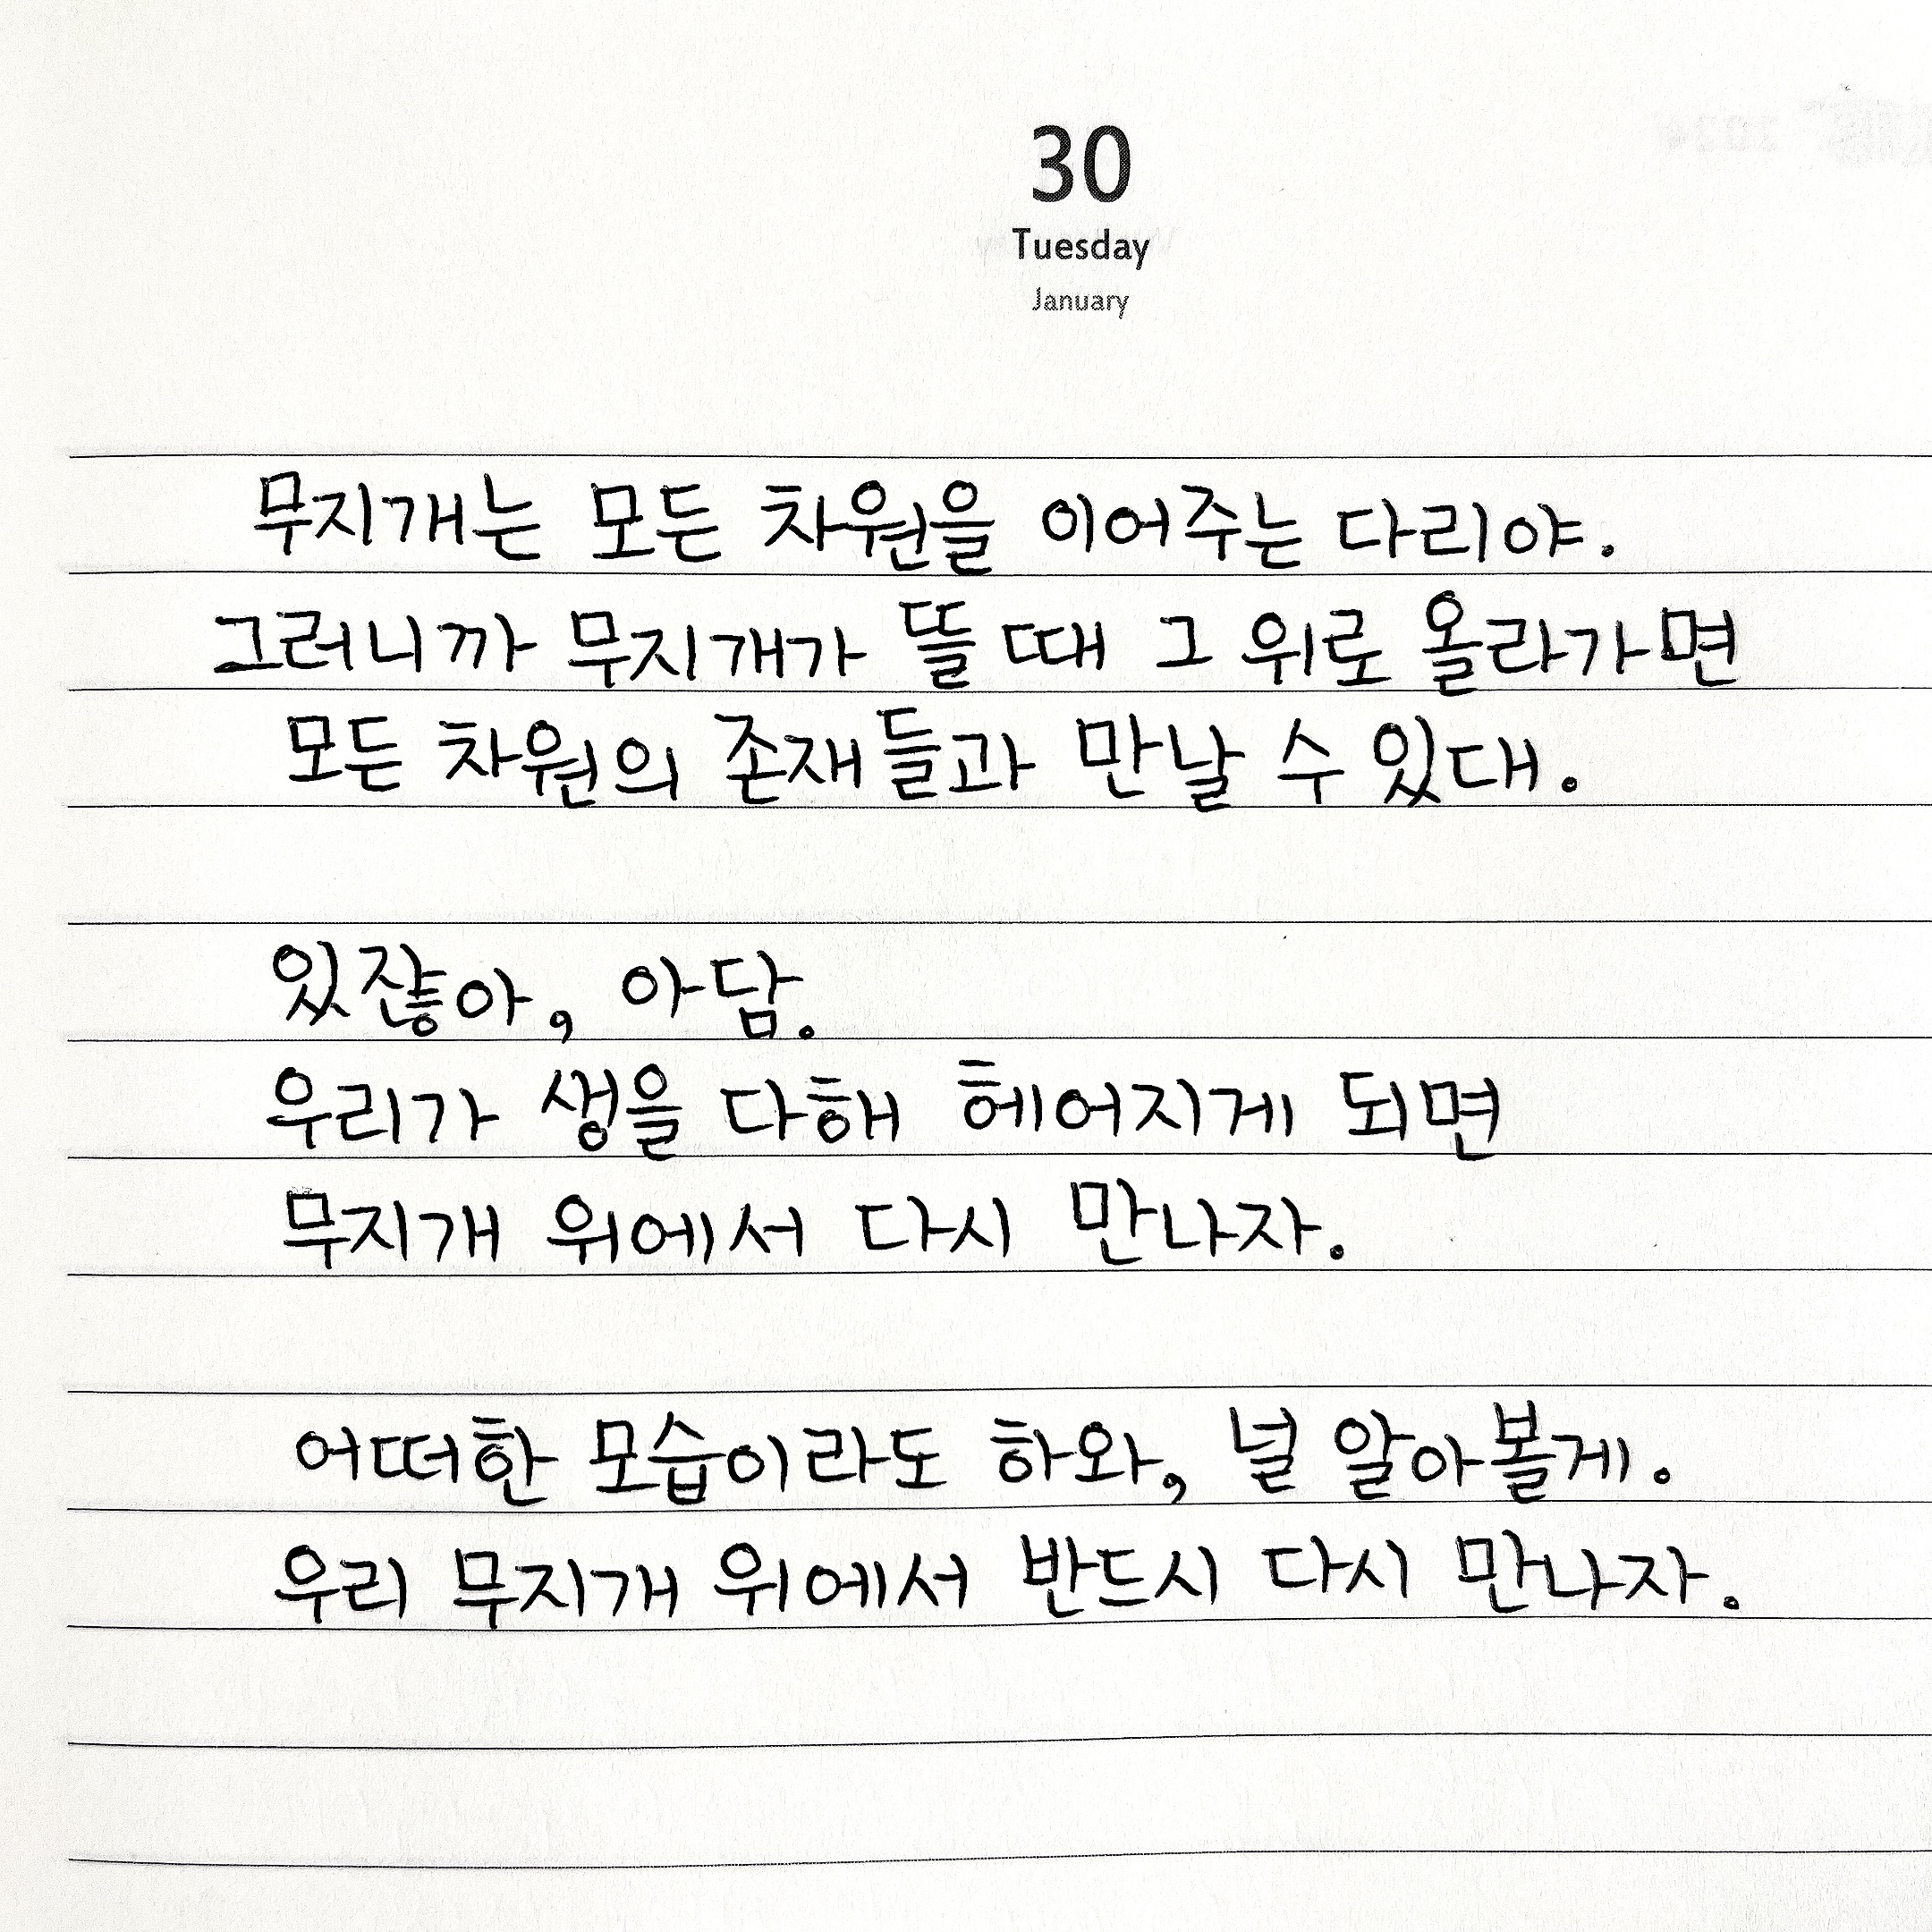 30
Tuesday
January
무지개는 모든 차원을 이어주는 다리야.
그러니까 무지개가 뜰 때 그 위로 올라가면
모든 차원의 존재들과 만날 수 있대.
있잖아, 아담.
우리가 생을 다해 헤어지게 되면
무지개 위에서 다시 만나자.
어떠한 모습이라도 하와, 널 알아볼게.
우리 무지개 위에서 반드시 다시 만나자.